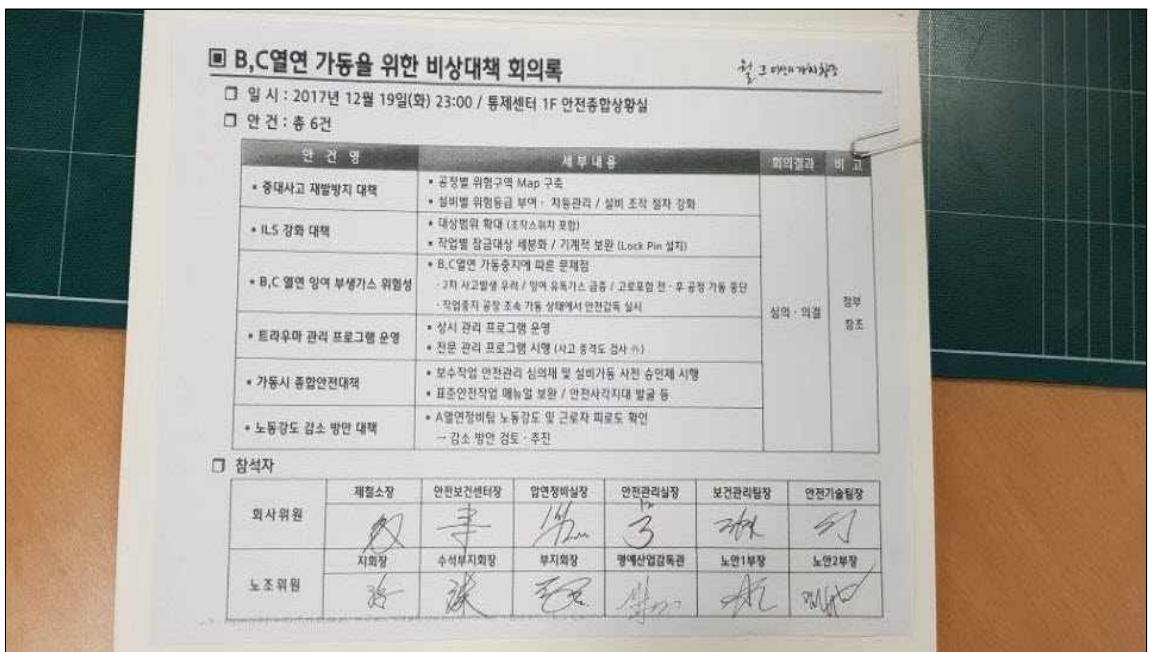 ▣ B,C열연 가동을 위한 비상대책 회의록
❒ 일 시 : 2017년 12월 19일(화) 23:00 / 통제센터 1F 안전종합상황실
❒ 안 건 : 총 6건
안 건 명 세 부 내 용 회의결과 비 고
• 중대사고 재발방지 대책
• 공정별 위험구역 Map 구축
• 설비별 위험등급 부여 · 차등관리 / 설비 조작 절차 강화
• ILS 강화 대책
• 대상범위 확대 (조작스위치 포함)
• 작업별 잠금대상 세분화 / 기계적 보완 (Lock Pin 설치)
• B,C 열연 잉여 부생가스 위험성
• B,C열연 가동중지에 따른 문제점
· 2차 사고발생 우려 / 잉여 유독가스 급증 / 고로포함 전·후 공정 가동 중단
· 작업중지 공장 조속 가동 상태에서 안전감독 실시
• 트라우마 관리 프로그램 운영
• 상시 관리 프로그램 운영
• 전문 관리 프로그램 시행 (사고 충격도 검사 外)
• 가동시 종합안전대책
• 보수작업 안전관리 심의제 및 설비가동 사전 승인제 시행
• 표준안전작업 매뉴얼 보완 / 안전사각지대 발굴 등
• 노동강도 감소 방안 대책
• A열연정비팀 노동강도 및 근로자 피로도 확인
→ 감소 방안 검토 · 추진
심의 · 의결
첨부
참조
❒ 참석자
회사위원
제철소장 안전보건센터장 압연정비실장 안전관리실장 보건관리팀장 안전기술팀장
노조위원
지회장 수석부지회장 부지회장 명예산업감독관 노안1부장 노안2부장